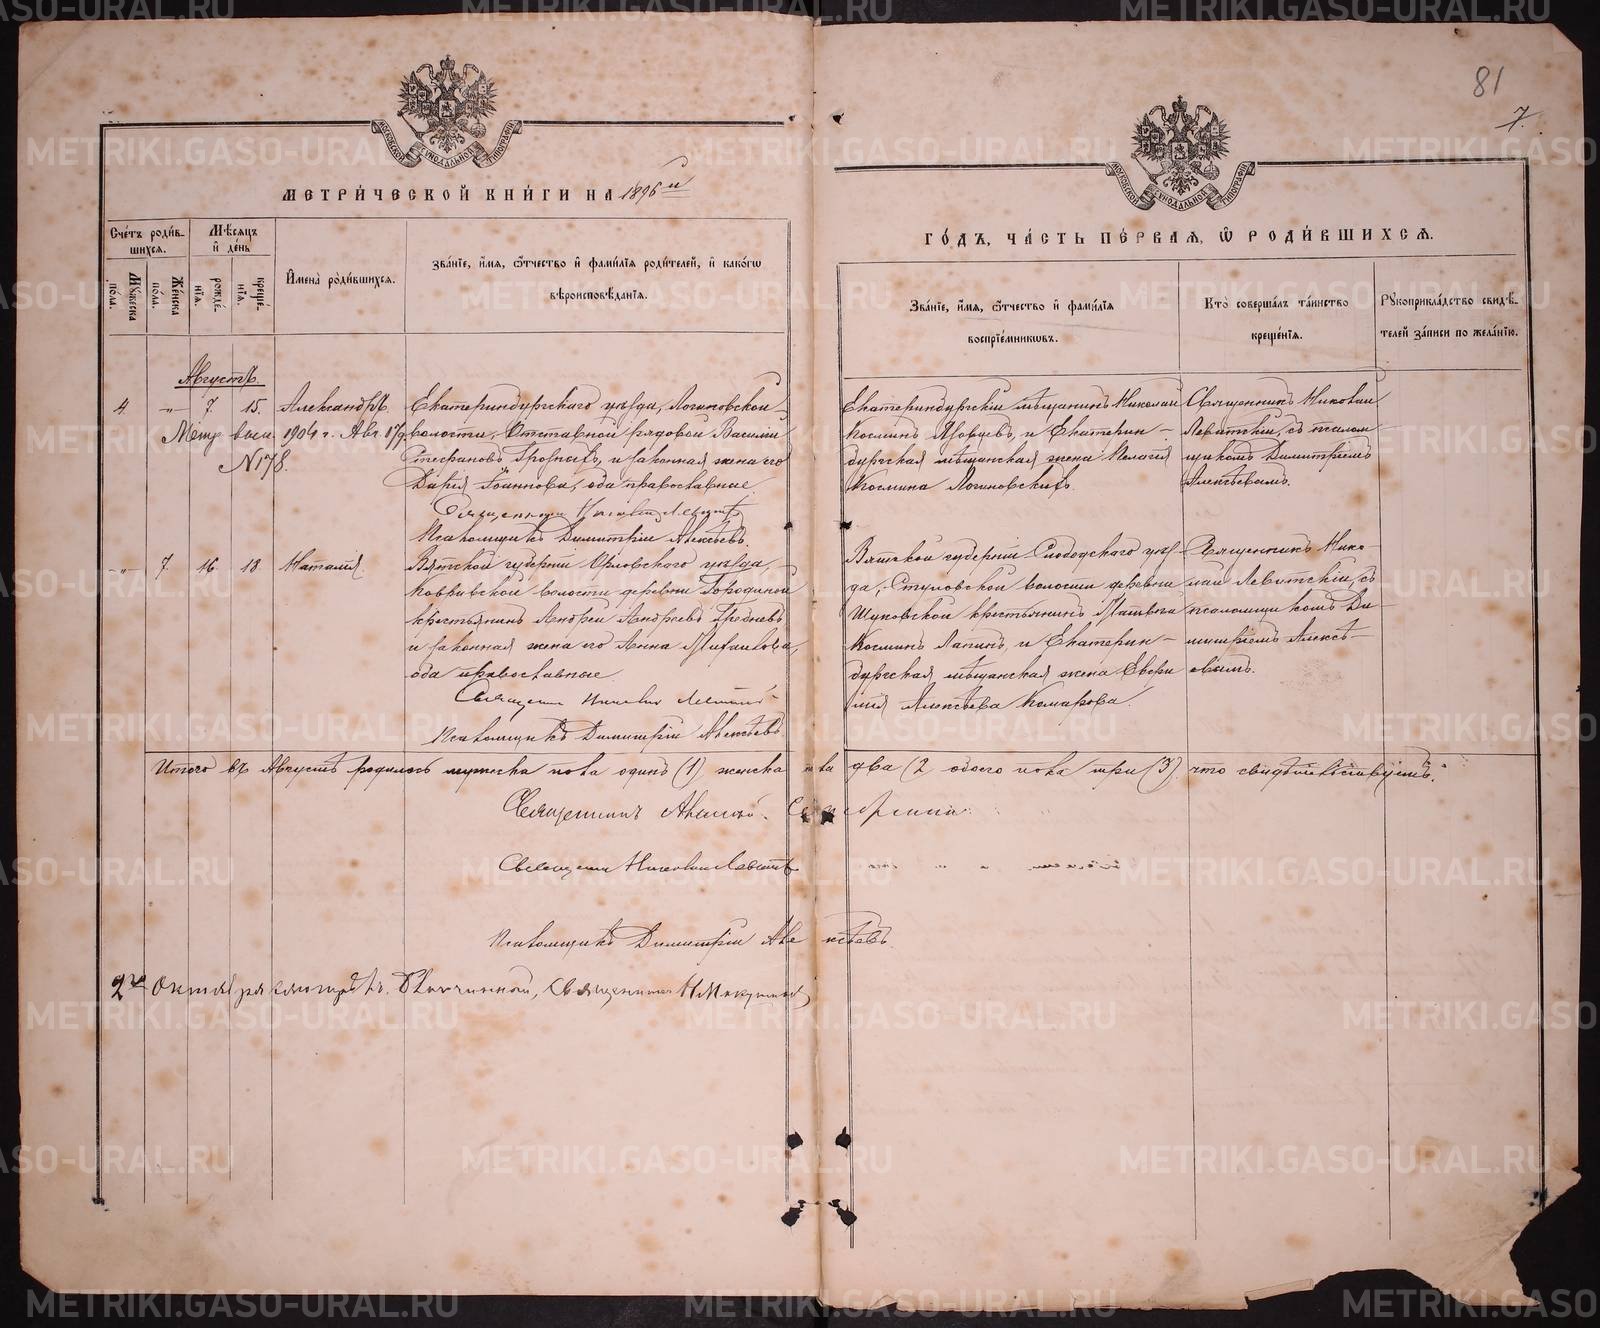 81
7.
МОСКОВСКОЙ СѴНОДАЛЬНОЙ ТИПОГРАФІИ
МОСКОВСКОЙ СѴНОДАЛЬНОЙ ТИПОГРАФІИ
МЕТРИ́ЧЕСКОЙ КНИ́ГИ НА 1896 й
ГО́ДЪ, ЧА́СТЬ ПЕ́РВАЯ, Ѽ РОДИ́ВШИХСЯ.
Счетъ роди́в-
шихся.
Мѣсяцъ
и҆ де́нь
Мужеска
пола.
Женска
пола.
рожде́-
нія.
креще́-
нія.
И҆мена̀ роди́вшихся.
Зва́ніе, и҆́мя, ѻ҆́тчество и҆ фами́лія роди́телей, и҆ како́гѡ
вѣроисповѣ́данія.
Зва́ніе, и҆́мя, ѻ҆́тчество и҆ фами́лія
воспріе́мникѡвъ.
Кто̀ соверша́лъ та́инство
креще́нія.
Рукоприкла́дство свидѣ́-
телей за́писи по жела́нію.
Августъ.
4 -"- 7. 15. Александръ.
Метр. выд. 1904 г. Авг. 17
№178.
Екатеринбургскаго уѣзда, Логиновской
волости, Отставной рядовой Василій
Стефановъ и законная жена его
Дарія Іоаннова, оба православные.
Священникъ Николай Левитскій
Псаломщикъ Димитрій Алексѣевъ.
Екатеринбургскій мѣщанинъ Николай
Косминъ и Екатерин-
бургская мѣщанская жена Пелагія
Космина Логиновскихъ.
Священникъ Николай
Левитскій, съ псалом-
щикомъ Димитріемъ
Алексѣевымъ.
-"- 7 16 18 Наталія.
Вятской губерніи Орловскаго уѣзда
волости деревни Городиной
крестьянинъ Андрей Андреевъ Гребневъ
и законная жена его Анна Михаилова,
оба православные.
Священникъ Николай Левитскій
Псаломщикъ Димитрій Алексѣевъ.
Вятской губерніи Слободскаго уѣз-
да, Стуловской волости деревни
Шуковской крестьянинъ Матвей
Космин Лапинъ, и Екатерин-
бургская мѣщанская жена Евфи
мія Алексѣева Комарова.
Священникъ Нико-
лай Левитскій, съ
псаломщикомъ Ди-
митріемъ Алексѣ-
евымъ.
Итого въ Августѣ родилось мужеска пола одинъ (1) женска пола два (2 обоего пола три (3). что свидѣтельствуемъ.
Священникъ
Священникъ Николай Левитскій
Псаломщикъ Димитрій Алексѣевъ.
2го Октября смотрѣлъ Благочинный, Священникъ
METRIKI.GASO-URAL.RU